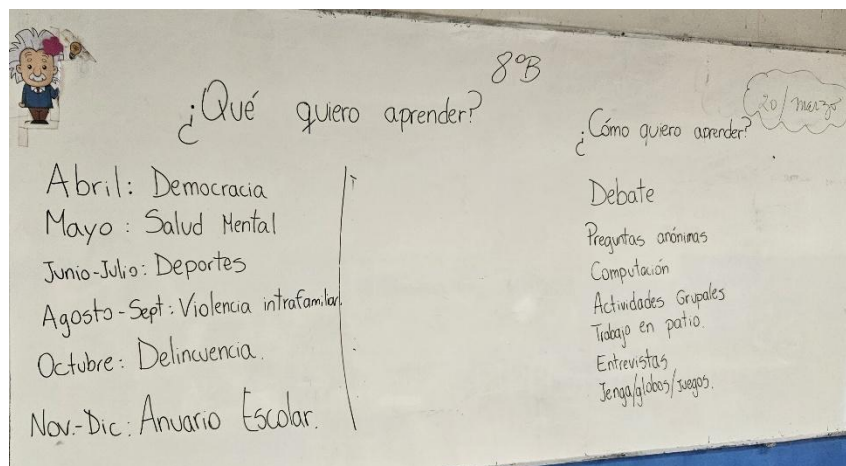 8ºB
20/marzo
¿Qué quiero aprender?
Abril: Democracia
Mayo: Salud Mental
Junio-Julio: Deportes
Agosto-Sept: Violencia intrafamiliar.
Octubre: Delincuencia.
Nov.-Dic: Anuario Escolar.
¿Cómo quiero aprender?
Debate
Preguntas anónimas
Computación
Actividades Grupales
Trabajo en patio.
Entrevistas
Jenga/globos/juegos.